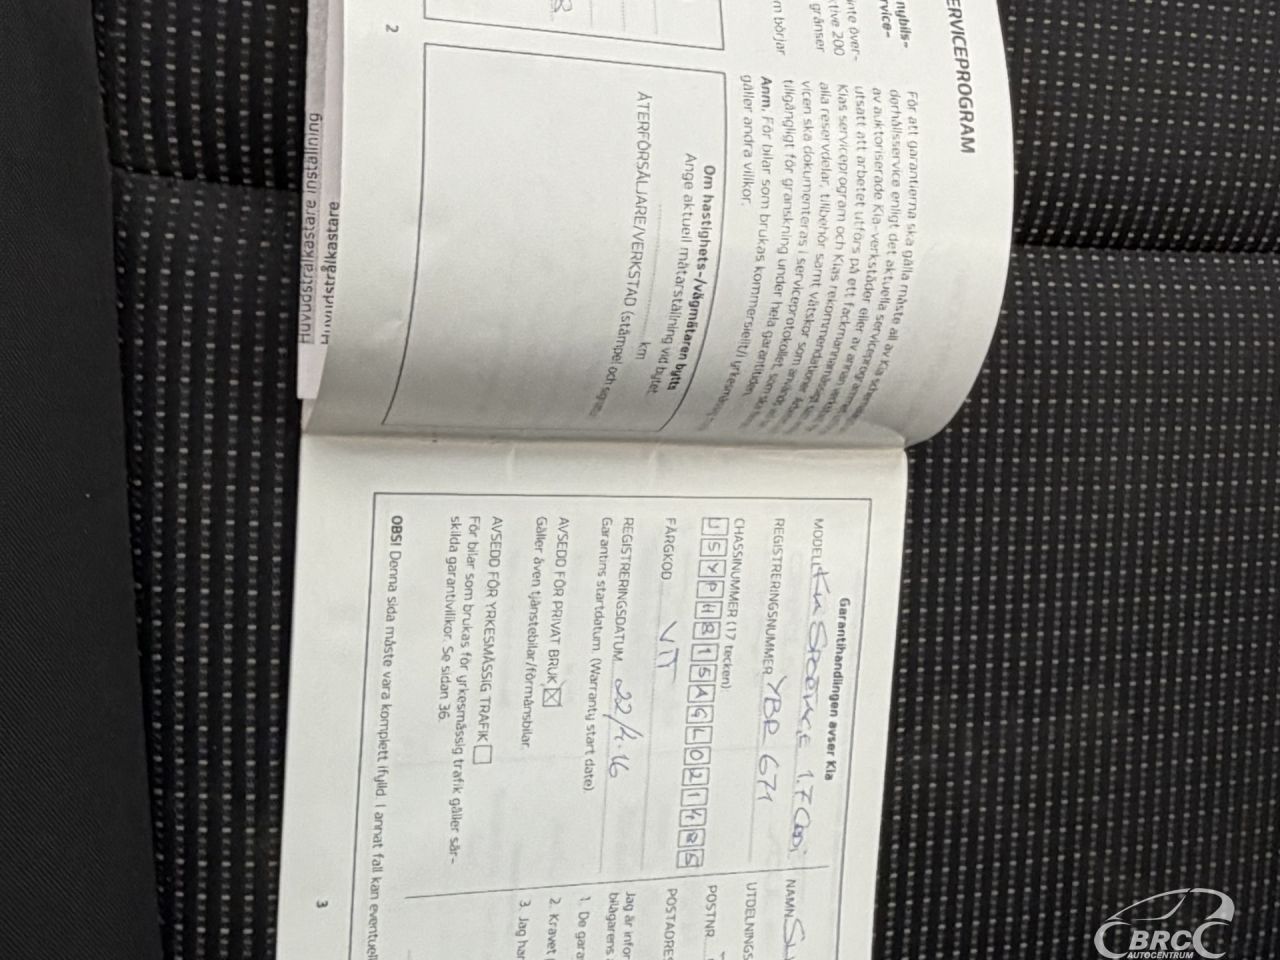 SERVICEPROGRAM
nybils-
rvice-
nte över-
ctive 200
gränser
m börjar
För att garantierna ska gälla måste all av Kia
derhållsservice enligt det aktuella
av auktoriserade Kia-verkstäder eller av annan
utsatt att arbetet utförs på ett fackmannamässigt
Kias serviceprogram och Kias rekommendationer
alla reservdelar, tillbehör samt vätskor som
vicen ska dokumenteras i serviceprotokollet, som
tillgängligt för granskning under hela garantitiden.
Anm. För bilar som brukas kommersiellt/i
gäller andra villkor.
Om hastighets-/vägmätaren bytts
Ange aktuell mätarställning vid bytet
km
ÅTERFÖRSÄLJARE/VERKSTAD (stämpel och
2
Huvudstrålkastare
Huvudstrålkastare inställning
Garantihandlingen avser Kia
MODELL Kia Sportage 1.7 CRDi
REGISTRERINGSNUMMER YBP 671
CHASSINUMMER (17 tecken):
FÄRGKOD VIT
REGISTRERINGSDATUM 22/4.16
Garantins startdatum. (Warranty start date).
AVSEDD FÖR PRIVAT BRUK ☒
Gäller även tjänstebilar/förmånsbilar.
AVSEDD FÖR YRKESMÄSSIG TRAFIK ☐
För bilar som brukas för yrkesmässig trafik gäller sär-
skilda garantivillkor. Se sidan 36.
OBS! Denna sida måste vara komplett ifylld. I annat fall kan eventuell
NAMN
UTDELNINGS
POSTNR.
POSTADRES
Jag är infor
bilägarens
1. De gara
2. Kravet
3. Jag har
3
BRC
AUTOCENTRUM